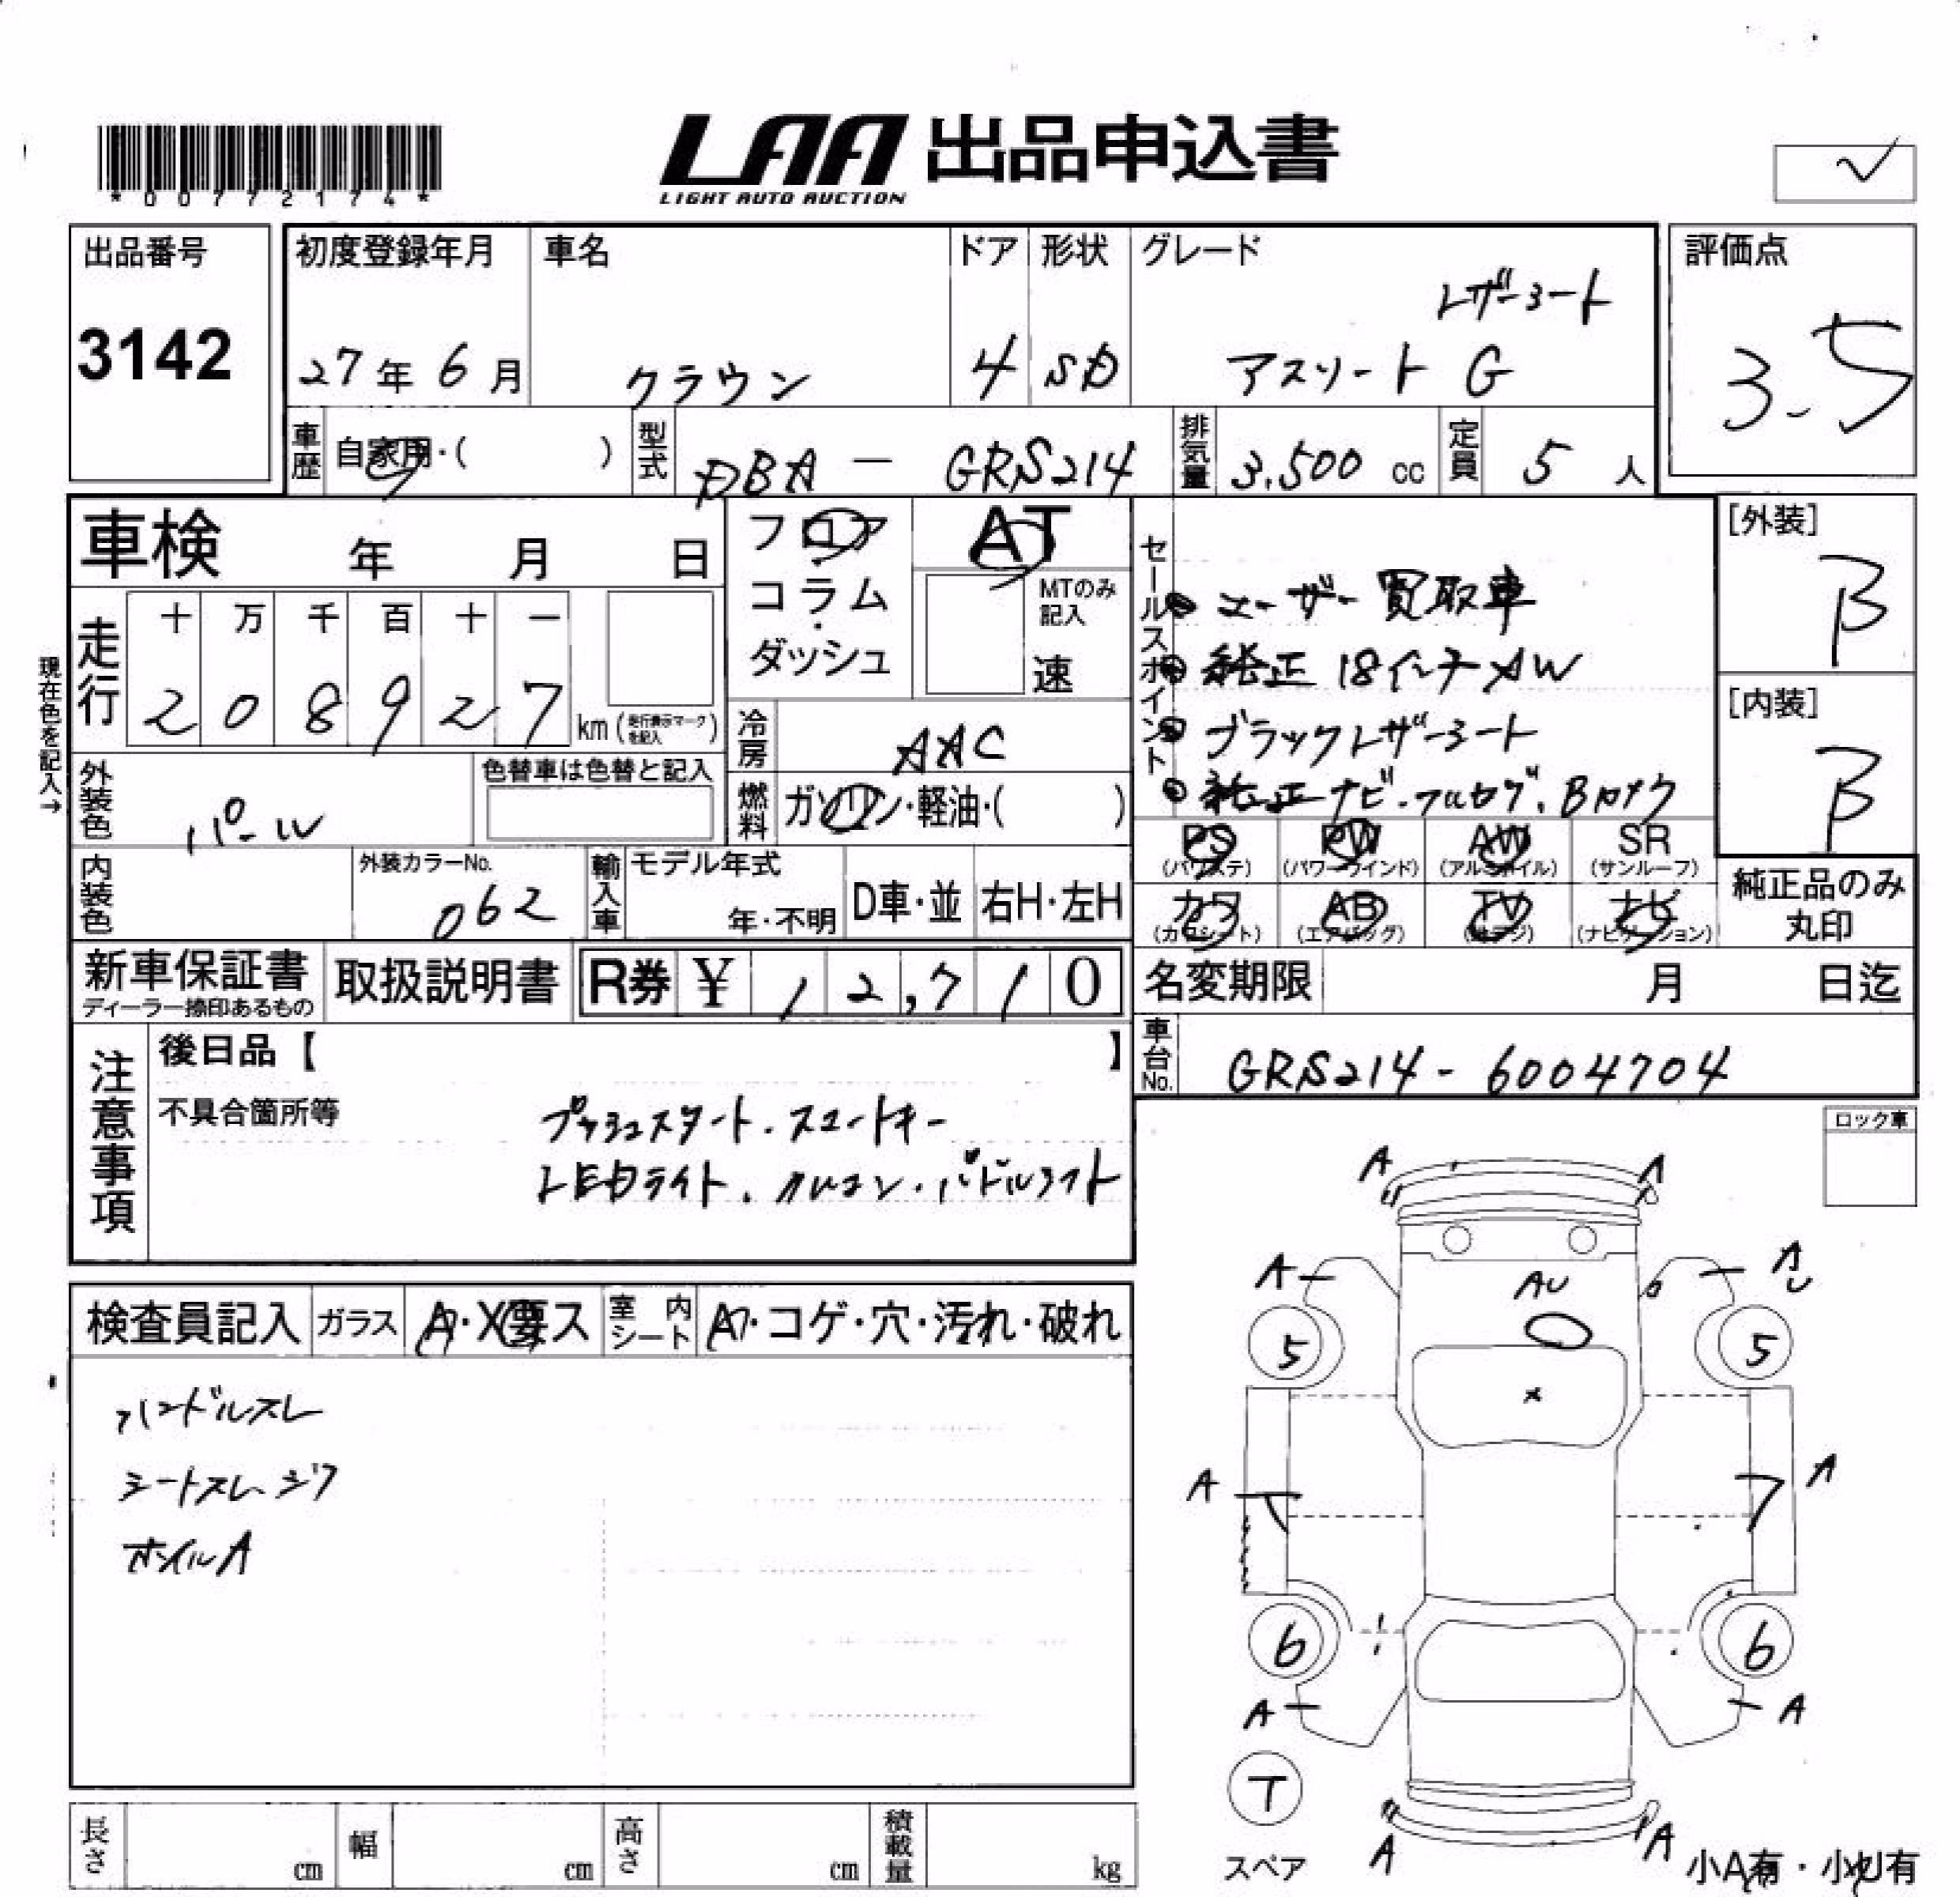 *00772174*
LAA 出品申込書
LIGHT AUTO AUCTION
出品番号
3142
初度登録年月
27年6月
車名
クラウン
ドア
4
形状
SD
グレード
レザーシート
アスリート G
評価点
3.5
車歴 自家用・( )
型式 DBA - GRS214
排気量 3,500 cc
定員 5 人
車検 年 月 日
フロア
コラム
・
ダッシュ
AT
MTのみ
記入
速
セールスポイント
ユーザー買取車
純正 18インチAW
ブラックレザーシート
純正ナビ・フルセグ、Bカメラ
[外装]
B
[内装]
B
現在色を記入→
走行
十 万 千 百 十 一
2 0 8 9 2 7 km (走行表示マークを記入)
冷房 AAC
燃料 ガソリン・軽油・( )
外装色 パール
色替車は色替と記入
内装色
外装カラーNo.
062
輸入車
モデル年式
年・不明
D車・並
右H・左H
PS (パワステ)
PW (パワーウインド)
AW (アルミホイル)
SR (サンルーフ)
カワ (カワシート)
AB (エアバッグ)
TV (地デジ)
ナビ (ナビゲーション)
純正品のみ
丸印
新車保証書
ディーラー捺印あるもの
取扱説明書
R券 ¥ 12,710
名変期限 月 日迄
車台No. GRS214-6004704
注意事項
後日品【 】
不具合箇所等
プッシュスタート．スマートキー
LEDライト．クルコン．パドルシフト
ロック車
検査員記入
ガラス A・X要ス
室内シート Aフ・コゲ・穴・汚れ・破れ
ハンドルスレ
シートスレ、シワ
ホイルA
A A
A A
AU
5 5
×
A A
6 6
A A
T
スペア
A A
小A有・小U有
長さ cm
幅 cm
高さ cm
積載量 kg